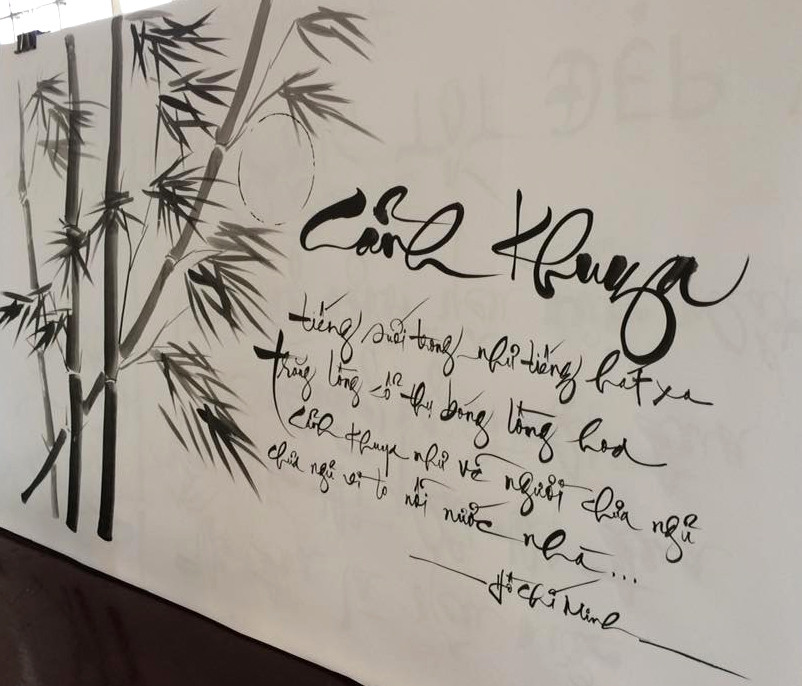 Cảnh Khuya
tiếng suối trong như tiếng hát xa
trăng lồng cổ thụ bóng lồng hoa
Cảnh khuya như vẽ người chưa ngủ
chưa ngủ vì lo nỗi nước nhà...
Hồ Chí Minh